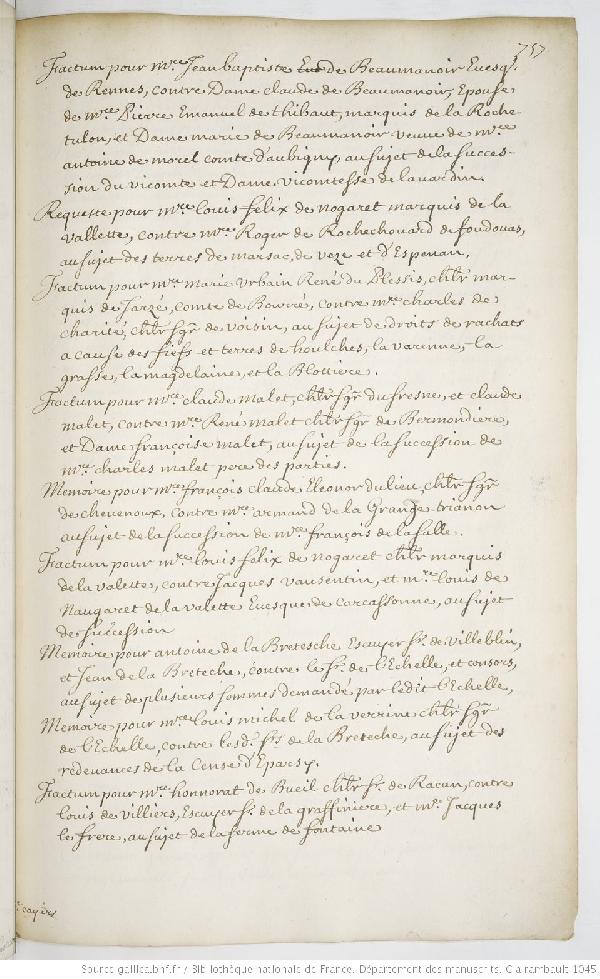 757
Factum pour mre Jean baptiste de Beaumanoir Evesq.
de Rennes, contre Dame claude de Beaumanoir, Epouse
de mre Pierre Emanuel de thibaut, marquis de la Roche-
tulon, et Dame marie de Beaumanoir veuve de mre
antoine de morel comte d'aubigny, au sujet de la succes-
sion du vicomte et Dame, vicomtesse de lavardin.
Requeste pour mre louis felix de nogaret marquis de la
vallette, contre mre Roger de Rochechouard de foudouas,
au sujet des terres de marsac, de veze et d'Espenan,
Factum pour mre marie Urbain René du Plessis, chlr mar-
quis de Jarzé, comte de Bourré, contre mre charles de
charité, chlr sgr de voisin, au sujet de droits de rachats
a cause des fiefs et terres de houlches, la varenne, la
grasse, la magdelaine, et la Blottiere.
Factum pour mre claude malet, chlr sgr dufresne, et claude
malet, contre mre René malet chlr sgr de Bermondiere,
et Dame françoise malet, au sujet de la succession de
mre charles malet pere des parties.
Memoire pour mre françois claude Eleonor dulieu, chlr sgr
de chenevoux, contre mre armand de la Grange trianon
au sujet de la succession de mre françois de la salle.
Factum pour mre louis felix de nogaret chlr marquis
de la valette, contre Jacques vansentin, et mre louis de
Naugaret de la valette Evesque de Carcassonne, au sujet
de succession
Memoire pour antoine de la Bretesche, Escuyer sr. de villeblin,
et Jean de la Breteche, contre le sr. de l'Echelle, et consors,
au sujet de plusieurs sommes demandé par ledit l'Echelle,
Memoire pour mre louis michel de la verrine chlr sgr
de l'Echelle, contre lesd. srs de la Breteche, au sujet des
redevances de la Cense d'Eparsy.
Factum pour mre honnorat de Bueil chlr sr. de Racan, contre
louis de villiers, Escuyer sr. de la graffiniere, et mre Jacques
le frere, au sujet de la ferme de fontaine
Source gallica.bnf.fr / Bibliothèque nationale de France. Département des manuscrits. Clairambault 1045